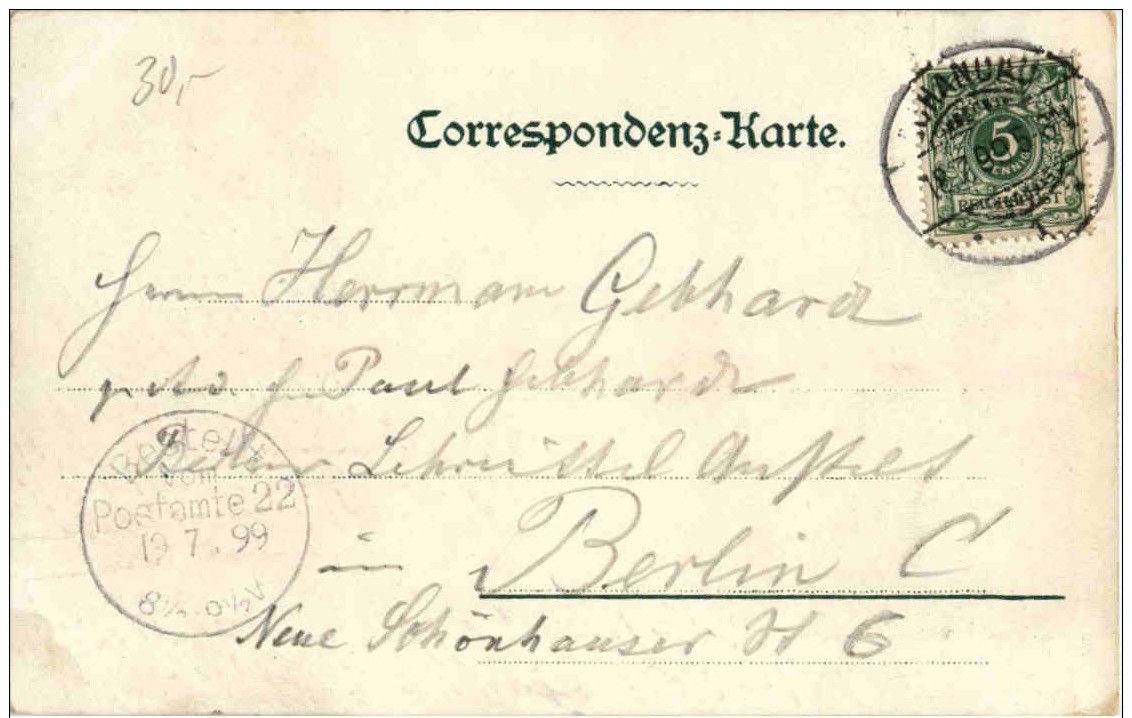 30,-
Correspondenz-Karte.
SCHANDAU
18.7.99
5
PFENNIG
REICHSPOST
Herrn Herrmann Gebhardt
Paul Gebhardt
Berliner Anstalt
Bestellt
vom
Postamte 22
19.7.99
8½-9½V
in Berlin C
Neue Schönhauser St 6